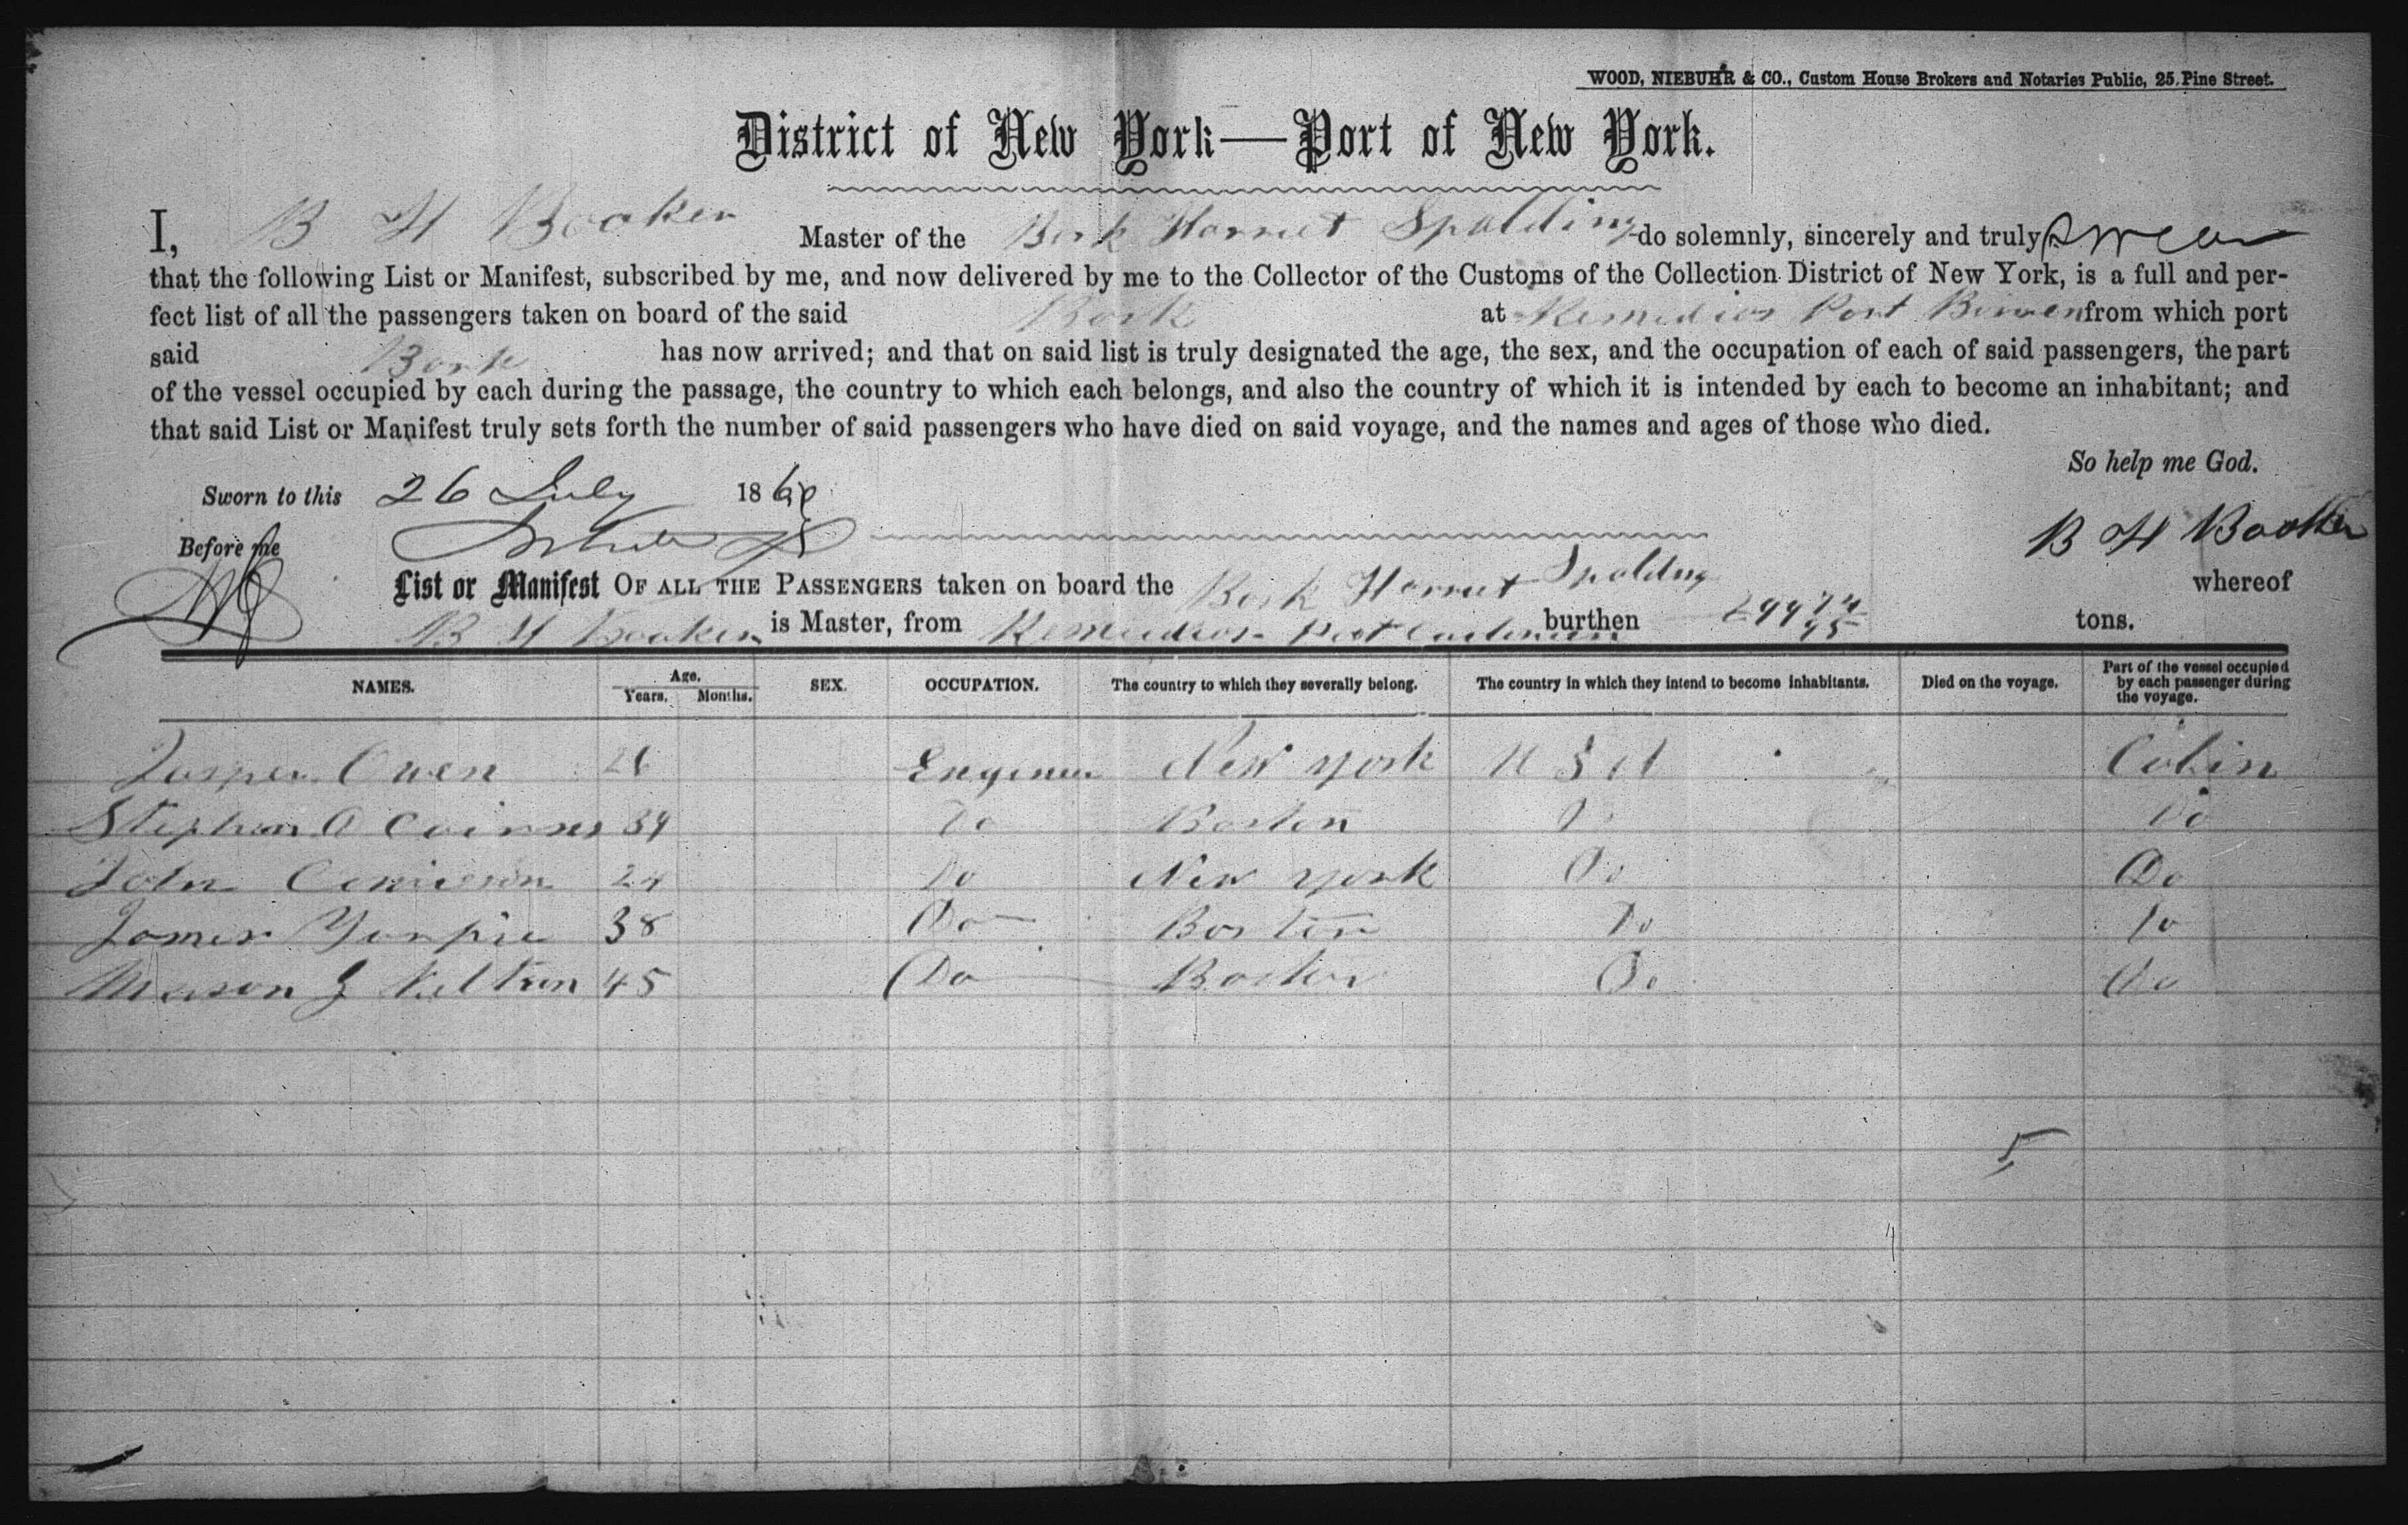 WOOD, NIEBUHR & CO., Custom House Brokers and Notaries Public, 25 Pine Street.
District of New York—Port of New York.
I, B H Booker Master of the Bark Harriet Spalding do solemnly, sincerely and truly swear
that the following List or Manifest, subscribed by me, and now delivered by me to the Collector of the Customs of the Collection District of New York, is a full and per-
fect list of all the passengers taken on board of the said Bark at Remedios Port from which port
said Bark has now arrived; and that on said list is truly designated the age, the sex, and the occupation of each of said passengers, the part
of the vessel occupied by each during the passage, the country to which each belongs, and also the country of which it is intended by each to become an inhabitant; and
that said List or Manifest truly sets forth the number of said passengers who have died on said voyage, and the names and ages of those who died.
So help me God.
Sworn to this 26 July 186
Before me
B H Booker
List or Manifest OF ALL THE PASSENGERS taken on board the Bark Harriet Spalding whereof
B H Booker is Master, from Remedios Port burthen tons.
NAMES. Age. Years. Months. SEX. OCCUPATION. The country to which they severally belong. The country in which they intend to become inhabitants. Died on the voyage. Part of the vessel occupied by each passenger during the voyage.
Jasper Owen 26 Engineer New York U S A Cabin
Stephen 39 Do Boston Do Do
John 24 Do New York Do Do
James 38 Do Boston Do Do
Mason J 45 Do Boston Do Do
5